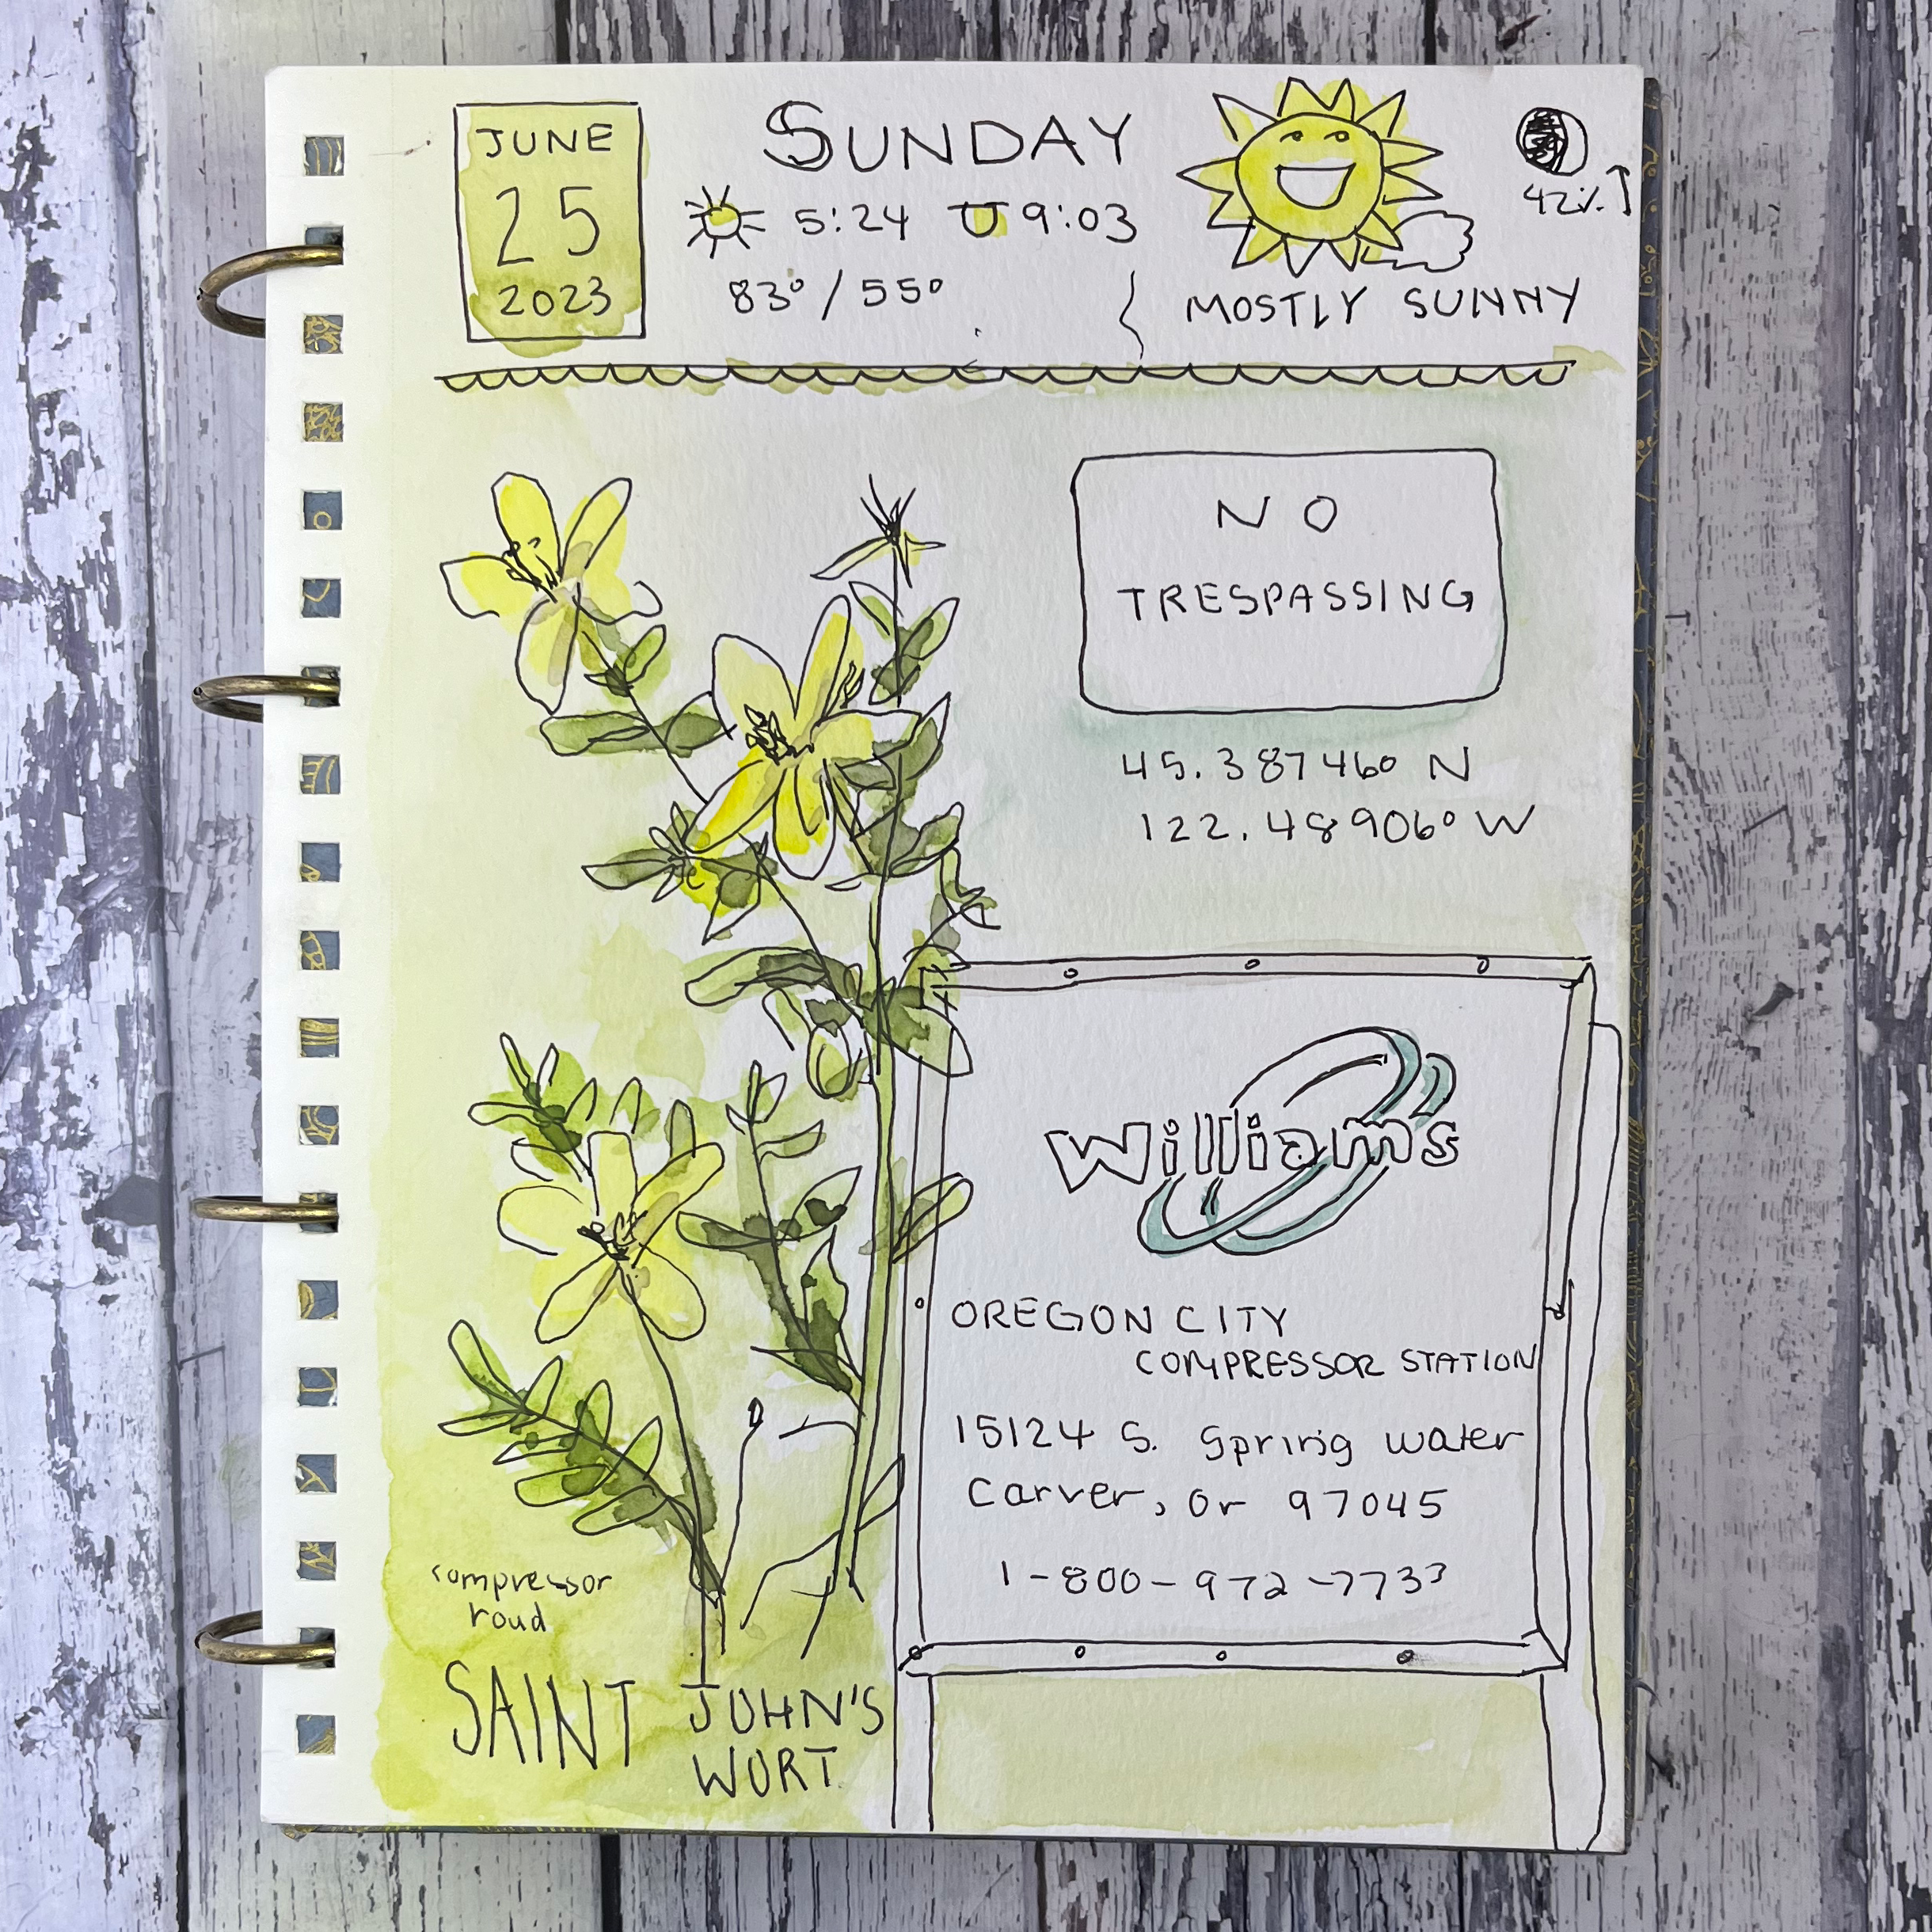 JUNE
25
2023
SUNDAY
5:24 9:03
83° / 55°
MOSTLY SUNNY
42%
NO
TRESPASSING
45.387460 N
122.48906° W
Williams
OREGON CITY
COMPRESSOR STATION
15124 S. Spring water
Carver, Or 97045
1-800-972-7733
compressor
roud
SAINT JOHN'S
WORT